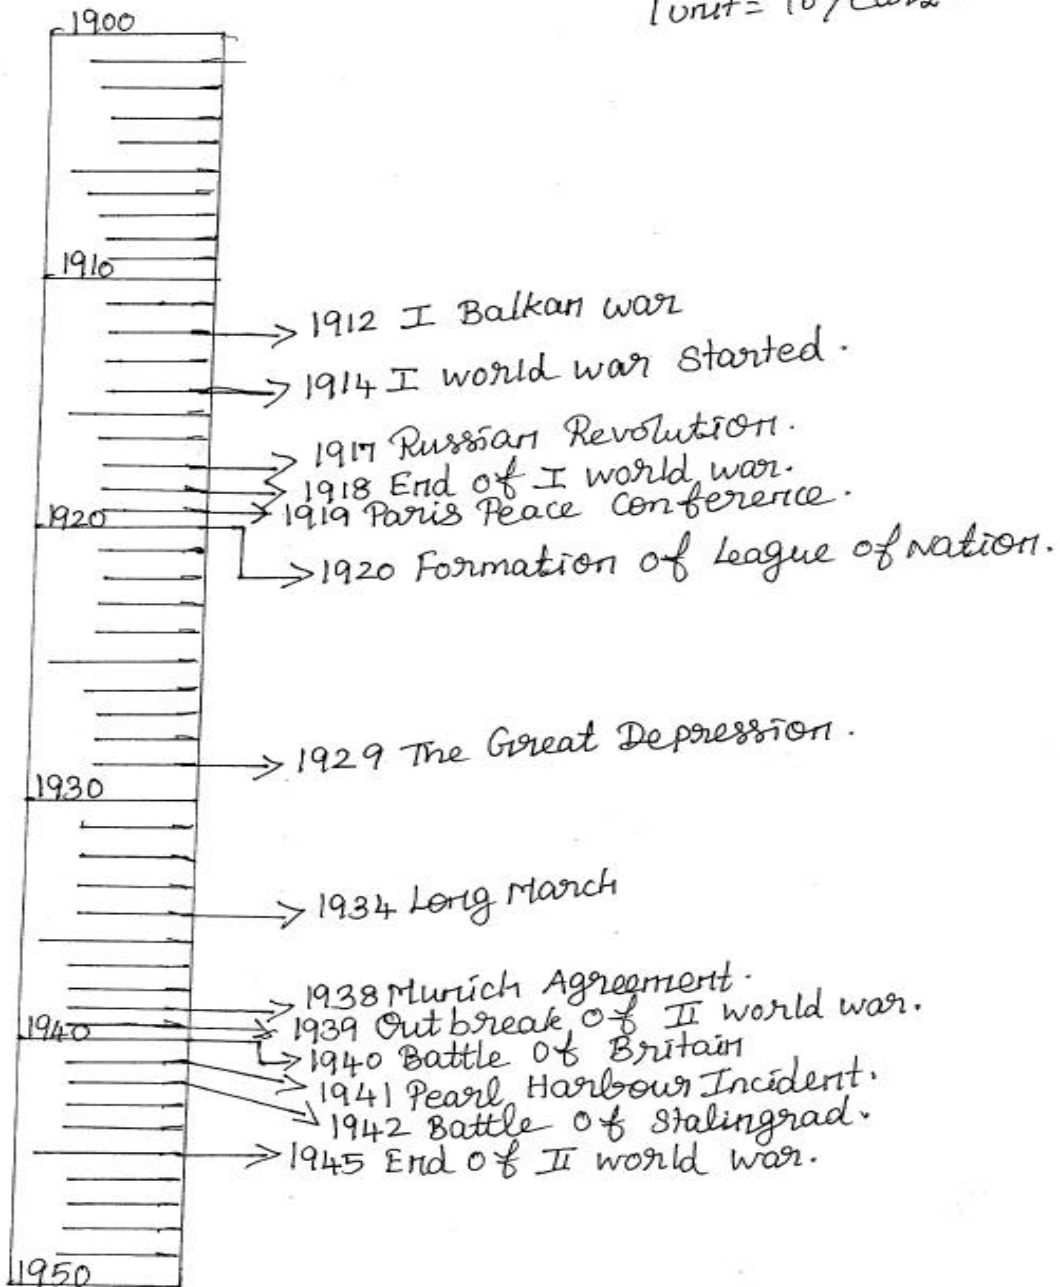 1 unit = 10 years
1900
1910
1912 I Balkan war
1914 I world war Started.
1917 Russian Revolution.
1918 End of I world war.
1919 Paris Peace Conference.
1920
1920 Formation of League of Nation.
1929 The Great Depression.
1930
1934 Long March
1938 Munich Agreement.
1939 Outbreak of II world war.
1940
1940 Battle of Britain
1941 Pearl Harbour Incident.
1942 Battle of Stalingrad.
1945 End of II world war.
1950